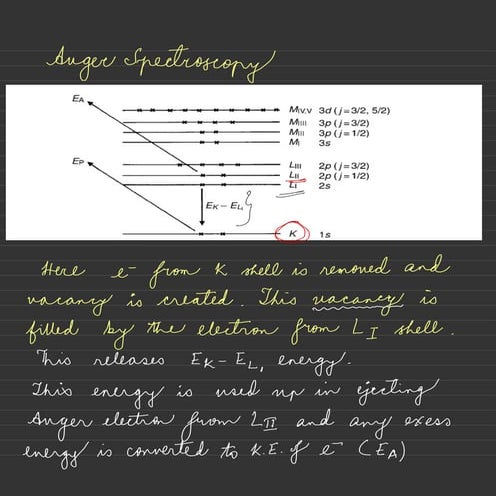 Auger Spectroscopy
E_A
M_IV,V 3d (j=3/2, 5/2)
M_III 3p (j=3/2)
M_II 3p (j=1/2)
M_I 3s
E_P
L_III 2p (j=3/2)
L_II 2p (j=1/2)
L_I 2s
E_K – E_L1
K 1s
Here e⁻ from K shell is removed and
vacancy is created. This vacancy is
filled by the electron from L_I shell.
This releases E_K – E_L1 energy.
This energy is used up in ejecting
Auger electron from L_II and any exess
energy is converted to K.E. of e⁻ (E_A)